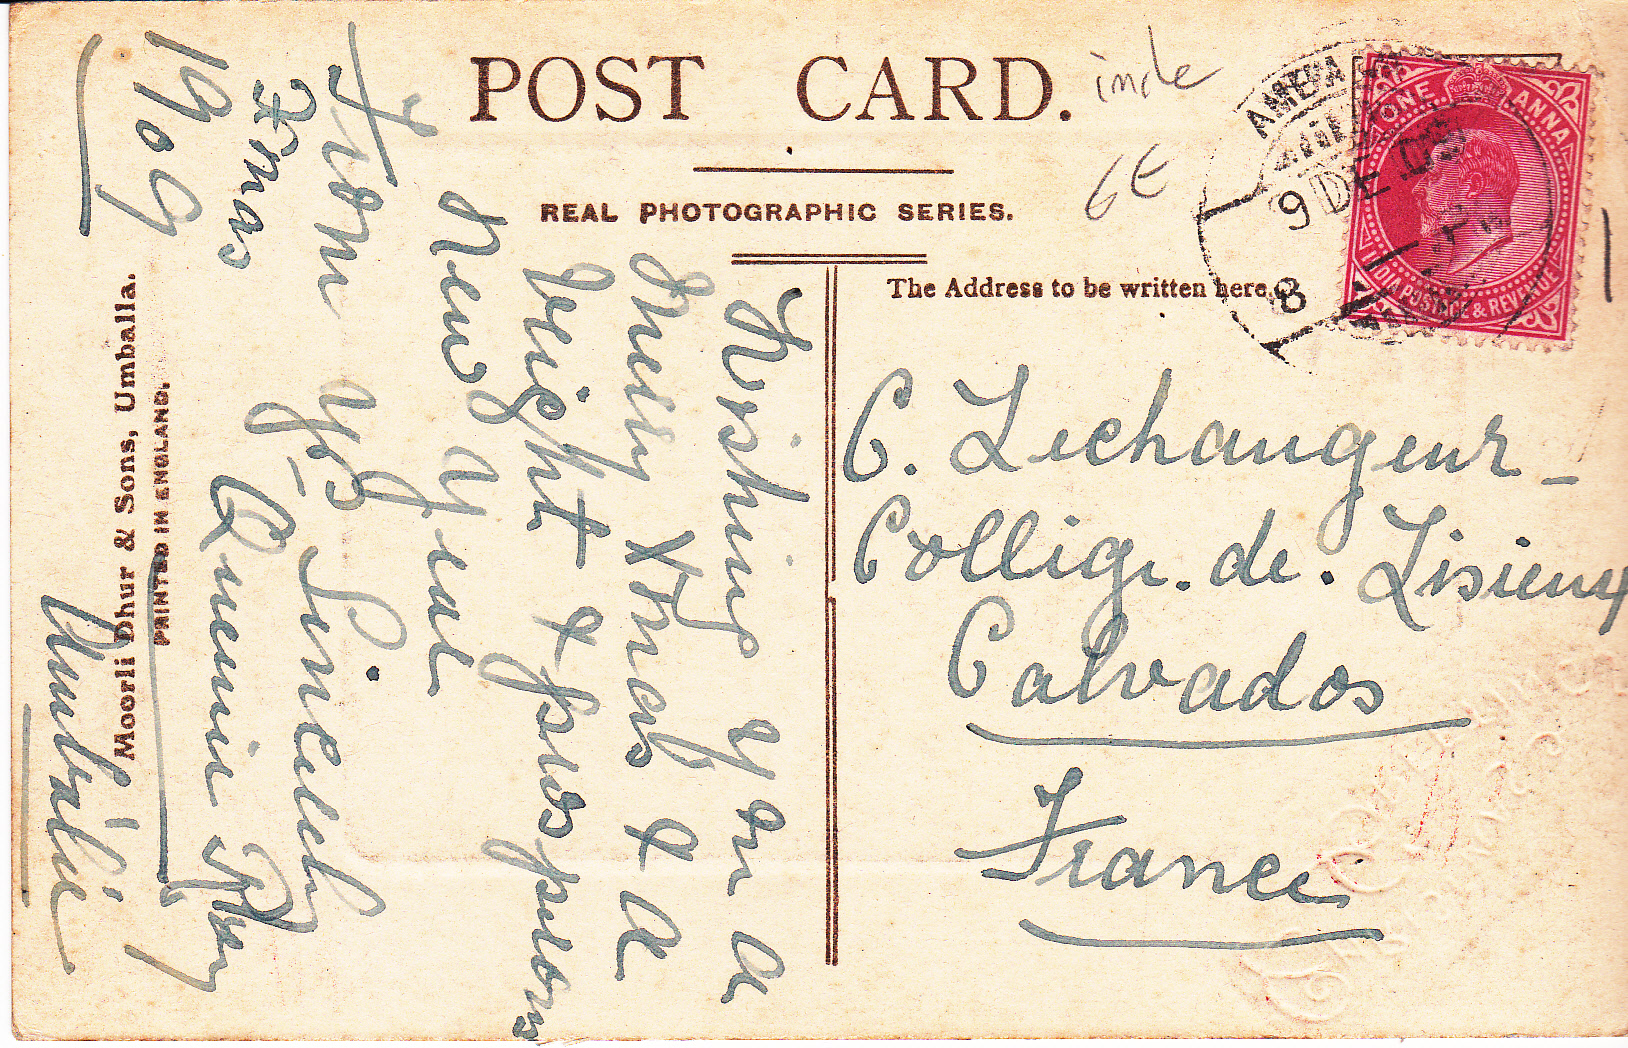 POST CARD.
inde
6E
REAL PHOTOGRAPHIC SERIES.
The Address to be written here.
ONE ANNA
INDIA POSTAGE & REVENUE
9 DE 09
8
C. Lechangeur -
Collige. de. Lisieux
Calvados
France
Wishing you a
Merry Xmas & a
bright & prosperous
New year
From yrs Sincerely
Queenie
Xmas
1909
Umballa
Moorli Dhur & Sons, Umballa.
PRINTED IN ENGLAND.